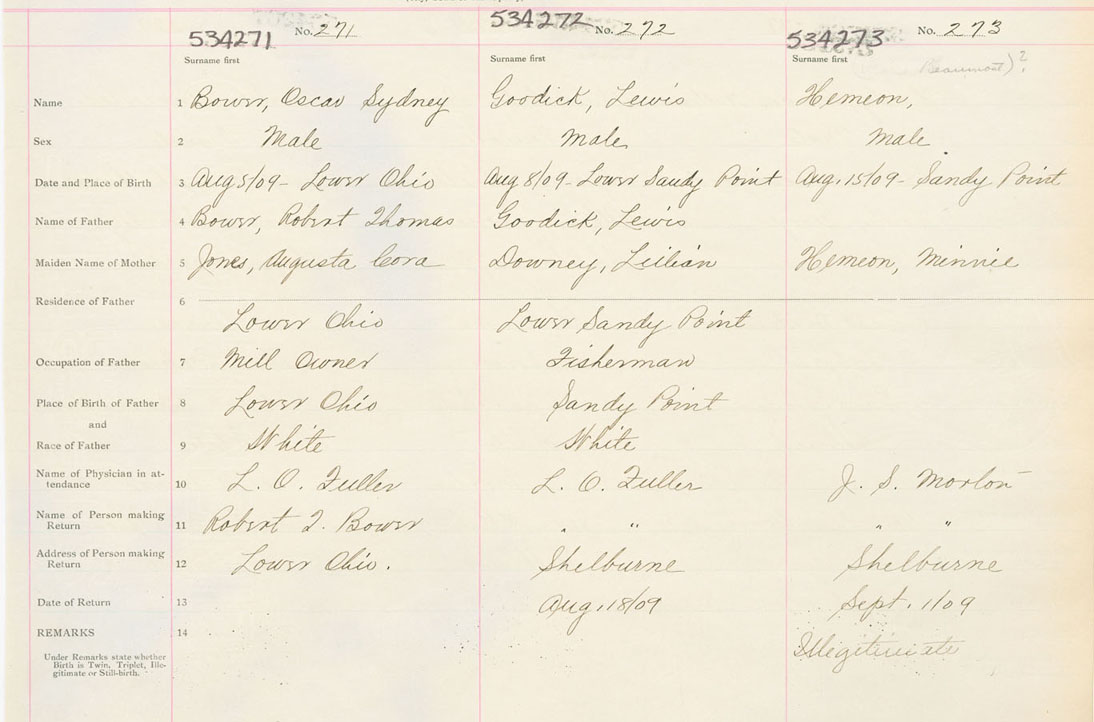 534271 No. 271 534272 No. 272 534273 No. 273
Surname first Surname first Surname first Beaumont)?
Name 1 Bower, Oscar Sydney Goodick, Lewis Hemeon,
Sex 2 Male Male Male
Date and Place of Birth 3 Aug 5/09 - Lower Ohio Aug 8/09 - Lower Sandy Point Aug. 15/09 - Sandy Point
Name of Father 4 Bower, Robert Thomas Goodick, Lewis
Maiden Name of Mother 5 Jones, Augusta Cora Downey, Lillian Hemeon, Minnie
Residence of Father 6
Lower Ohio Lower Sandy Point
Occupation of Father 7 Mill Owner Fisherman
Place of Birth of Father 8 Lower Ohio Sandy Point
and
Race of Father 9 White White
Name of Physician in at-
tendance 10 L. O. Fuller L. O. Fuller J. S. Morton
Name of Person making
Return 11 Robert T. Bower " " " "
Address of Person making
Return 12 Lower Ohio. Shelburne Shelburne
Date of Return 13 Aug. 18/09 Sept. 1/09
REMARKS 14 Illegitimate
Under Remarks state whether
Birth is Twin, Triplet, Ille-
gitimate or Still-birth.